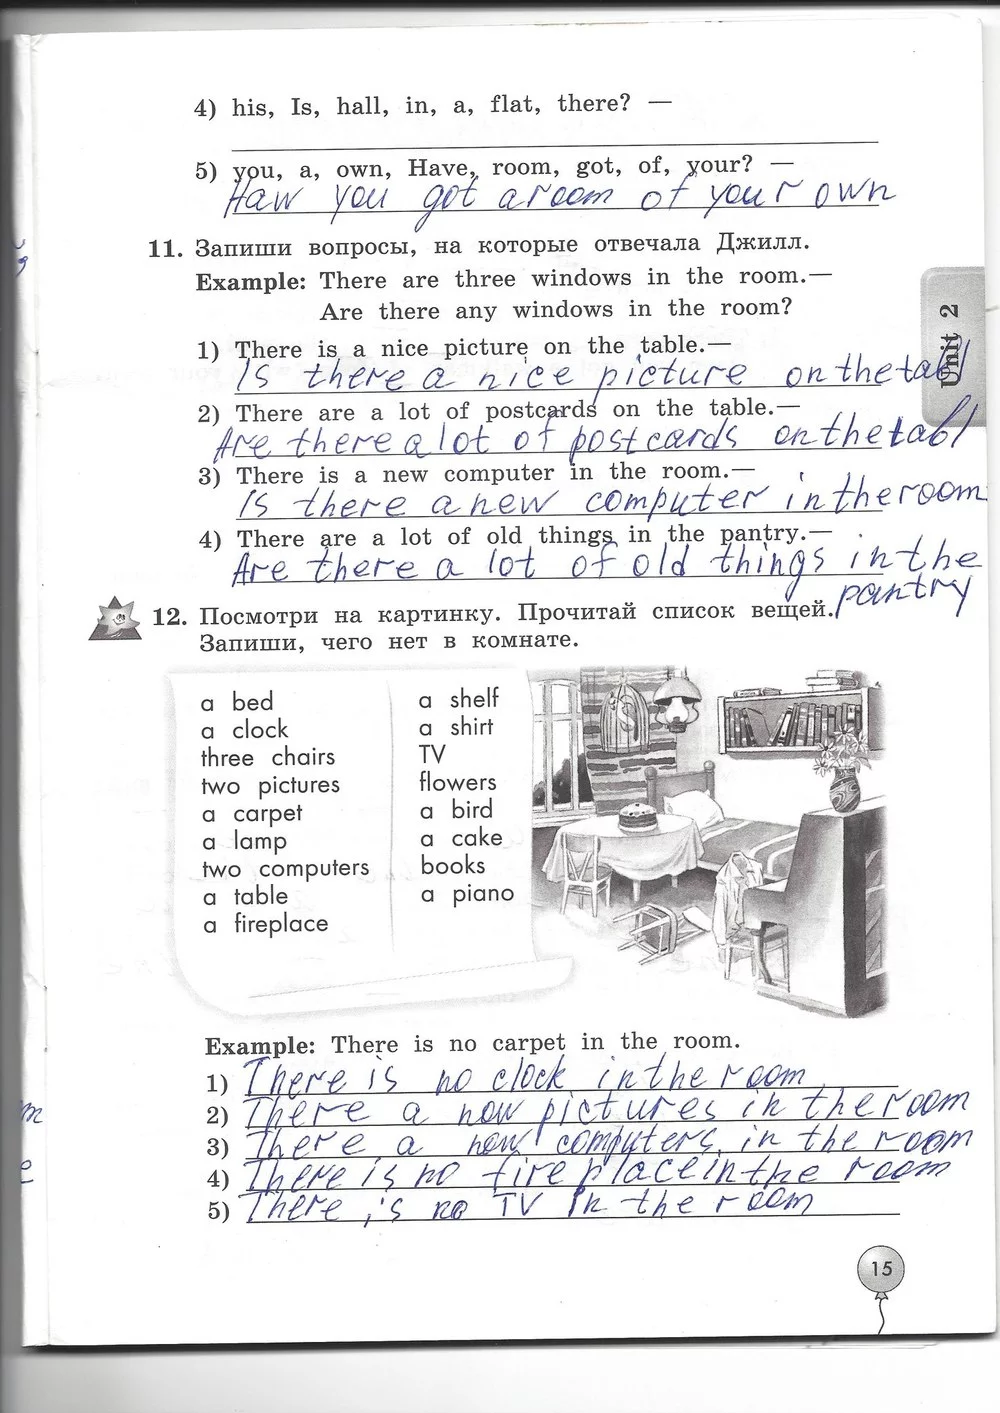 4) his, Is, hall, in, a, flat, there? —
5) you, a, own, Have, room, got, of, your? —
Haw you got a room of your own
11. Запиши вопросы, на которые отвечала Джилл.
Example: There are three windows in the room.—
Are there any windows in the room?
1) There is a nice picture on the table.—
Is there a nice picture on the tabl
2) There are a lot of postcards on the table.—
Are there a lot of postcards on the tabl
3) There is a new computer in the room.—
Is there a new computer in the room
4) There are a lot of old things in the pantry.—
Are there a lot of old things in the
pantry
Unit 2
12. Посмотри на картинку. Прочитай список вещей.
Запиши, чего нет в комнате.
a bed
a clock
three chairs
two pictures
a carpet
a lamp
two computers
a table
a fireplace
a shelf
a shirt
TV
flowers
a bird
a cake
books
a piano
Example: There is no carpet in the room.
1) There is no clock in the room
2) There a now pictures in the room
3) There a now computers in the room
4) There is no fire place in the room
5) There is no TV in the room
15